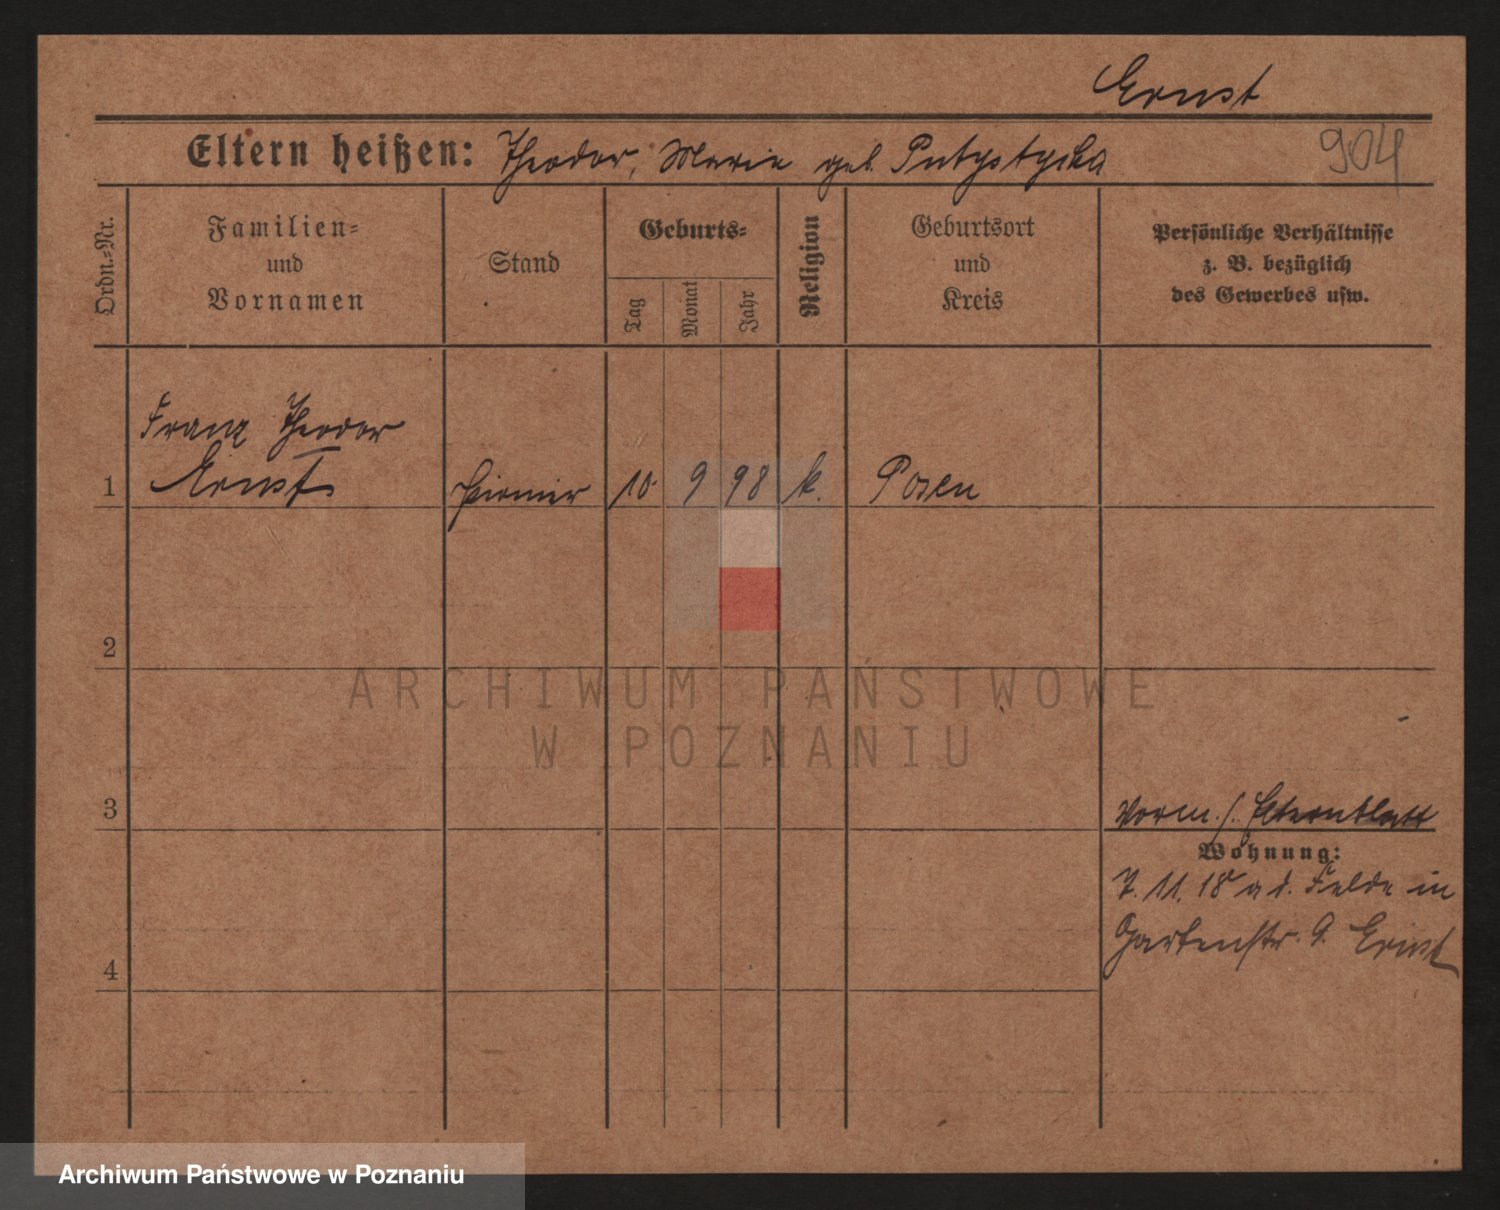 Ernst
904
Eltern heißen: Theodor, Marie geb.
Ordn.-Nr.
Familien-
und
Vornamen
Stand
Geburts-
Tag
Monat
Jahr
Religion
Geburtsort
und
Kreis
Persönliche Verhältnisse
z. B. bezüglich
des Gewerbes usw.
Franz Theodor
1 Ernst Pionier 10 9 98 k. Posen
2
ARCHIWUM PAŃSTWOWE
W POZNANIU
3
Vorm. s. Elternblatt
Wohnung:
7. 11. 18 a d. Felde in
Gartenstr. 9. Ernst
4
Archiwum Państwowe w Poznaniu